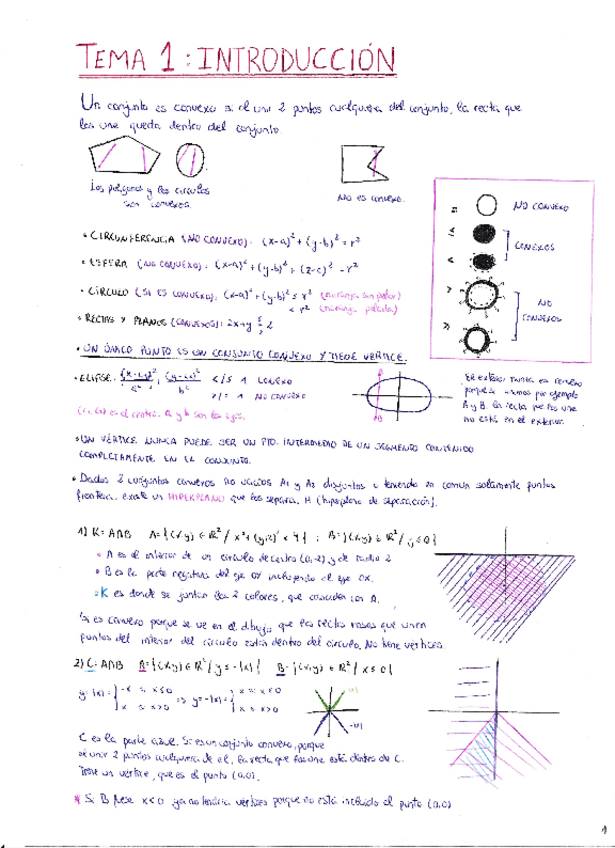 TEMA 1: INTRODUCCIÓN
Un conjunto es convexo si al unir 2 puntos cualquiera del conjunto, la recta que
los une queda dentro del conjunto.
Los polígonos y los círculos
son convexos.
No es convexo.
= NO CONVEXO
≤
CONVEXOS
<
>
NO
CONVEXOS
≥
• CIRCUNFERENCIA (NO CONVEXO): (x-a)² + (y-b)² = r²
• ESFERA (NO CONVEXO): (x-a)² + (y-b)² + (z-c)² = r²
• CÍRCULO (SI ES CONVEXO): (x-a)² + (y-b)² ≤ r² (naranja sin pelar)
< r² (naranja pelada)
• RECTAS Y PLANOS (CONVEXOS): 2x+y 2
• UN ÚNICO PUNTO ES UN CONJUNTO CONVEXO Y TIENE VÉRTICE.
• ELIPSE: </≤ 1 CONVEXO
>/= 1 NO CONVEXO
es el centro. a y b son los ejes.
El exterior nunca es convexo
porque si unimos por ejemplo
A y B la recta que los une
no está en el exterior.
• UN VÉRTICE NUNCA PUEDE SER UN PTO. INTERMEDIO DE UN SEGMENTO CONTENIDO
COMPLETAMENTE EN EL CONJUNTO.
• Dados 2 conjuntos convexos no vacíos A1 y A2 disjuntos o teniendo en común solamente puntos
frontera, existe un HIPERPLANO que los separa. H (hiperplano de separación).
1) K = A∩B A = {(x,y) ∈ ℝ² / x² + (y+2)² < 4} ; B = {(x,y) ∈ ℝ² / y ≤ 0}
• A es el interior de un círculo de centro (0,-2) y de radio 2
• B es la parte negativa del eje OY incluyendo el eje OX.
• K es donde se juntan los 2 colores, que coinciden con A.
Si es convexo porque se ve en el dibujo que las rectas rosas que unen
puntos del interior del círculo están dentro del círculo. No tiene vértices.
2) C = A∩B A = {(x,y) ∈ ℝ² / y ≤ -|x|} B = {(x,y) ∈ ℝ² / x ≤ 0}
y = |x| = { -x si x ≤ 0 ⇒ y = -|x| = { x si x ≤ 0
x si x > 0 x si x > 0
C es la parte azul. Si es un conjunto convexo, porque
al unir 2 puntos cualquiera de él, la recta que los une está dentro de C.
Tiene un vértice, que es el punto (0,0).
* Si B fuese x < 0 ya no tendría vértices porque no está incluido el punto (0,0)
1